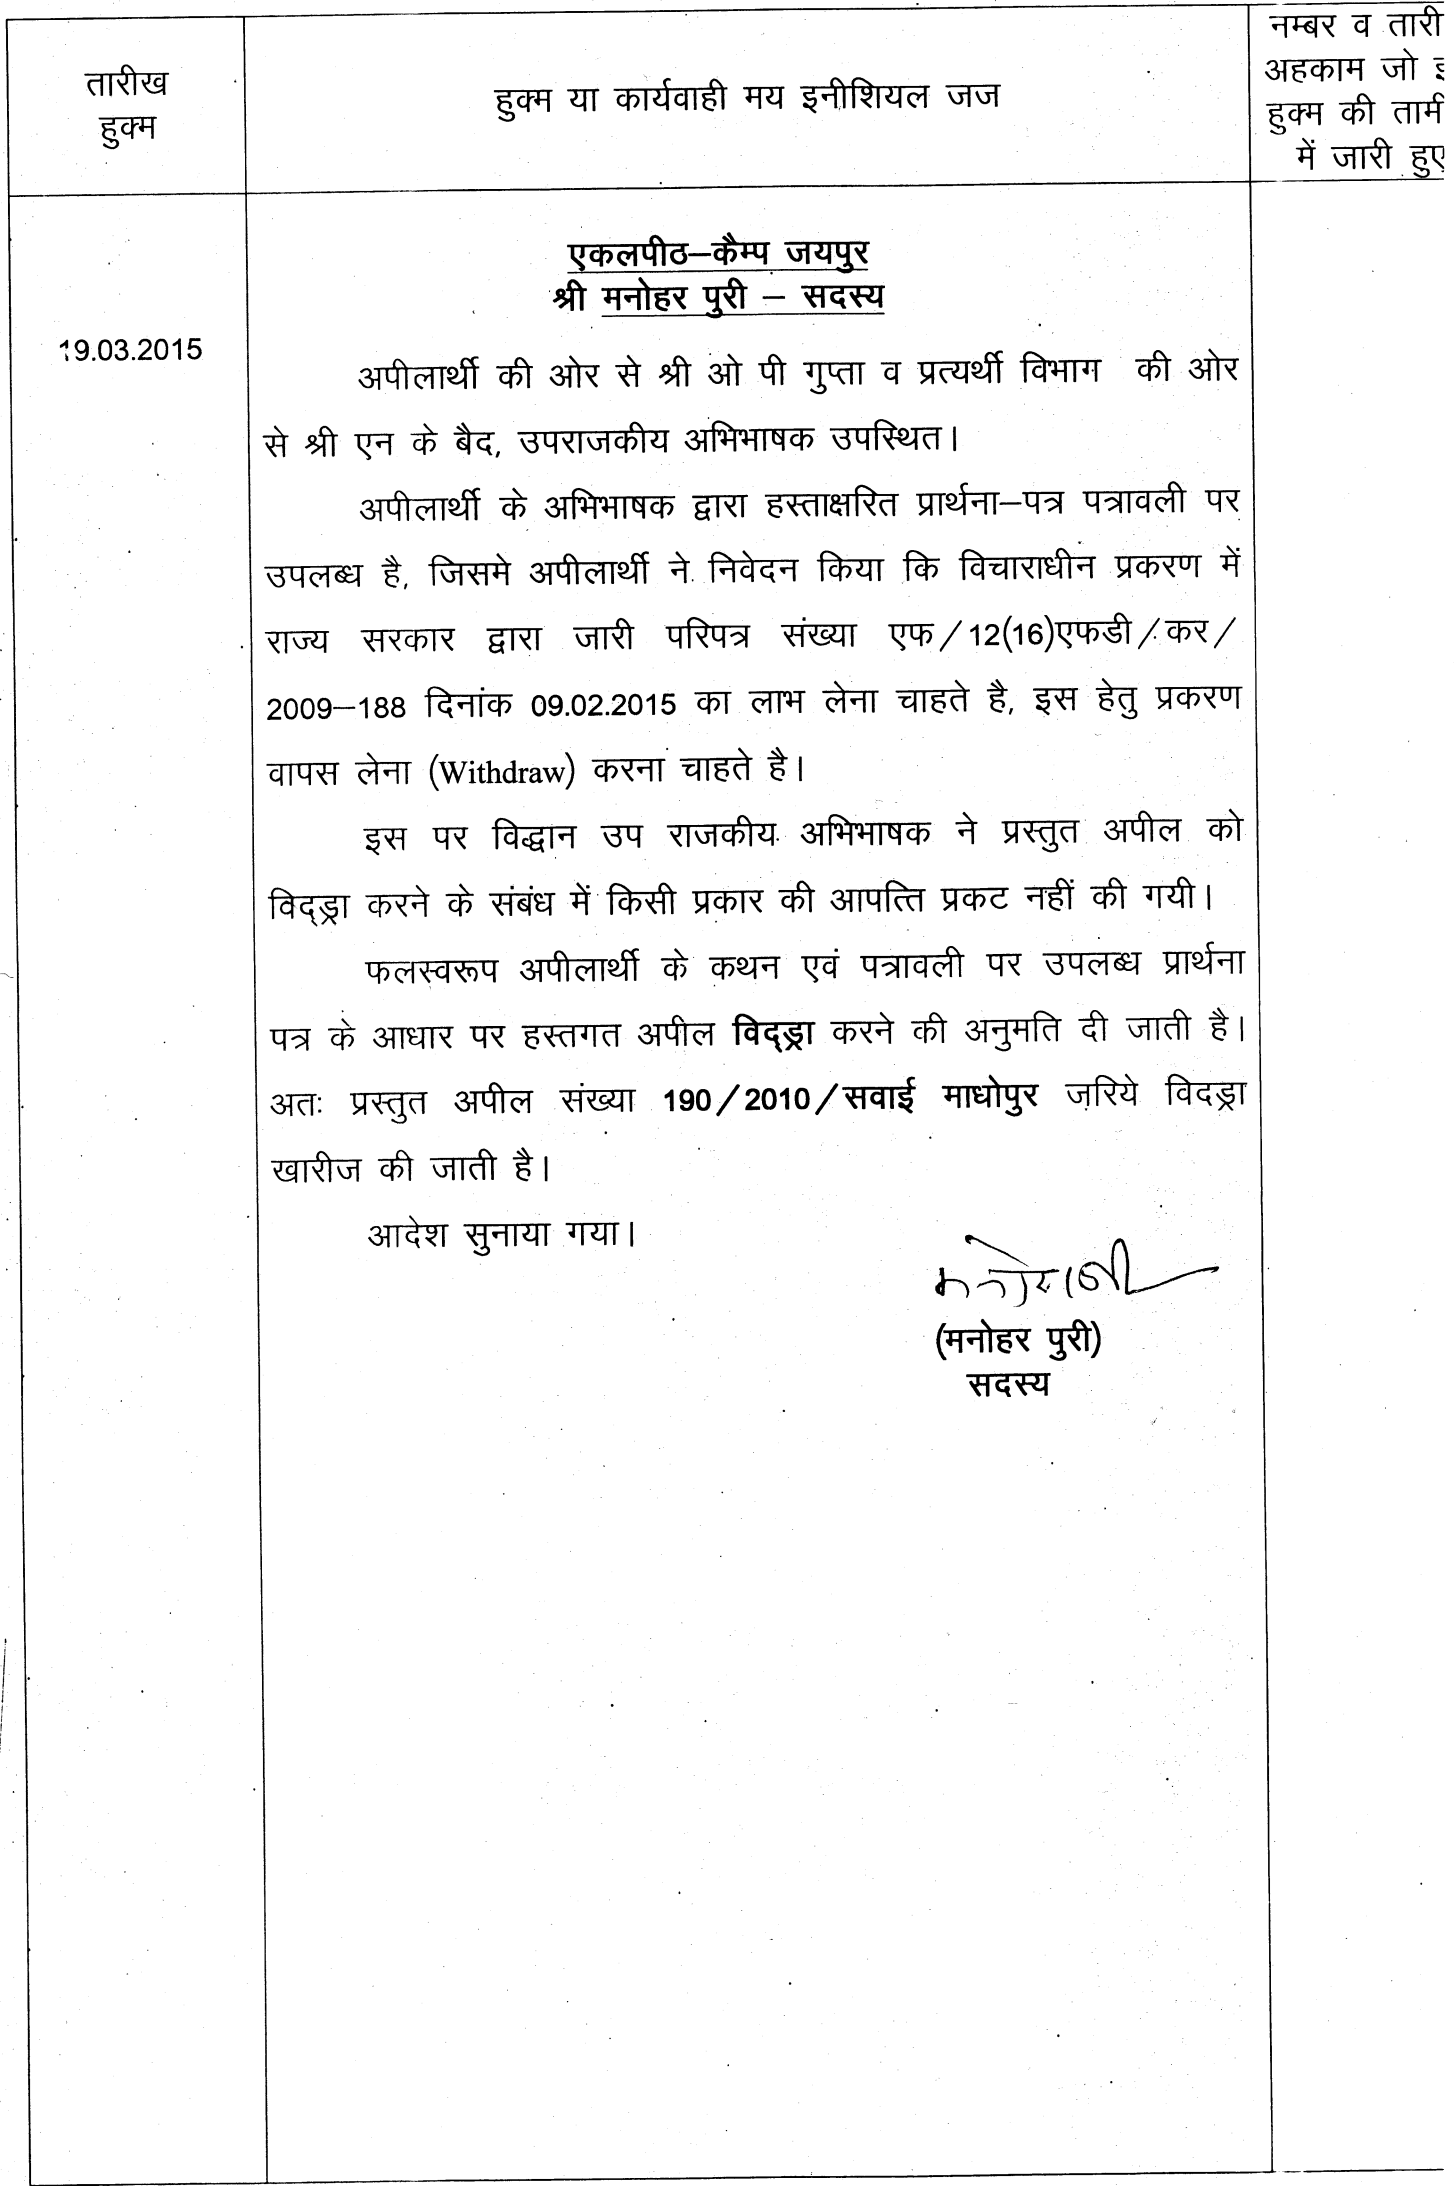 तारीख
हुक्म
हुक्म या कार्यवाही मय इनीशियल जज
नम्बर व तारी
अहकाम जो इ
हुक्म की तामी
में जारी हुए
एकलपीठ–कैम्प जयपुर
श्री मनोहर पुरी – सदस्य
19.03.2015
अपीलार्थी की ओर से श्री ओ पी गुप्ता व प्रत्यर्थी विभाग की ओर
से श्री एन के बैद, उपराजकीय अभिभाषक उपस्थित।
अपीलार्थी के अभिभाषक द्वारा हस्ताक्षरित प्रार्थना–पत्र पत्रावली पर
उपलब्ध है, जिसमे अपीलार्थी ने निवेदन किया कि विचाराधीन प्रकरण में
राज्य सरकार द्वारा जारी परिपत्र संख्या एफ/12(16)एफडी/कर/
2009–188 दिनांक 09.02.2015 का लाभ लेना चाहते है, इस हेतु प्रकरण
वापस लेना (Withdraw) करना चाहते है।
इस पर विद्धान उप राजकीय अभिभाषक ने प्रस्तुत अपील को
विद्ड्रा करने के संबंध में किसी प्रकार की आपत्ति प्रकट नहीं की गयी।
फलस्वरूप अपीलार्थी के कथन एवं पत्रावली पर उपलब्ध प्रार्थना
पत्र के आधार पर हस्तगत अपील विद्ड्रा करने की अनुमति दी जाती है।
अतः प्रस्तुत अपील संख्या 190/2010/सवाई माधोपुर जरिये विदड्रा
खारीज की जाती है।
आदेश सुनाया गया।
(मनोहर पुरी)
सदस्य